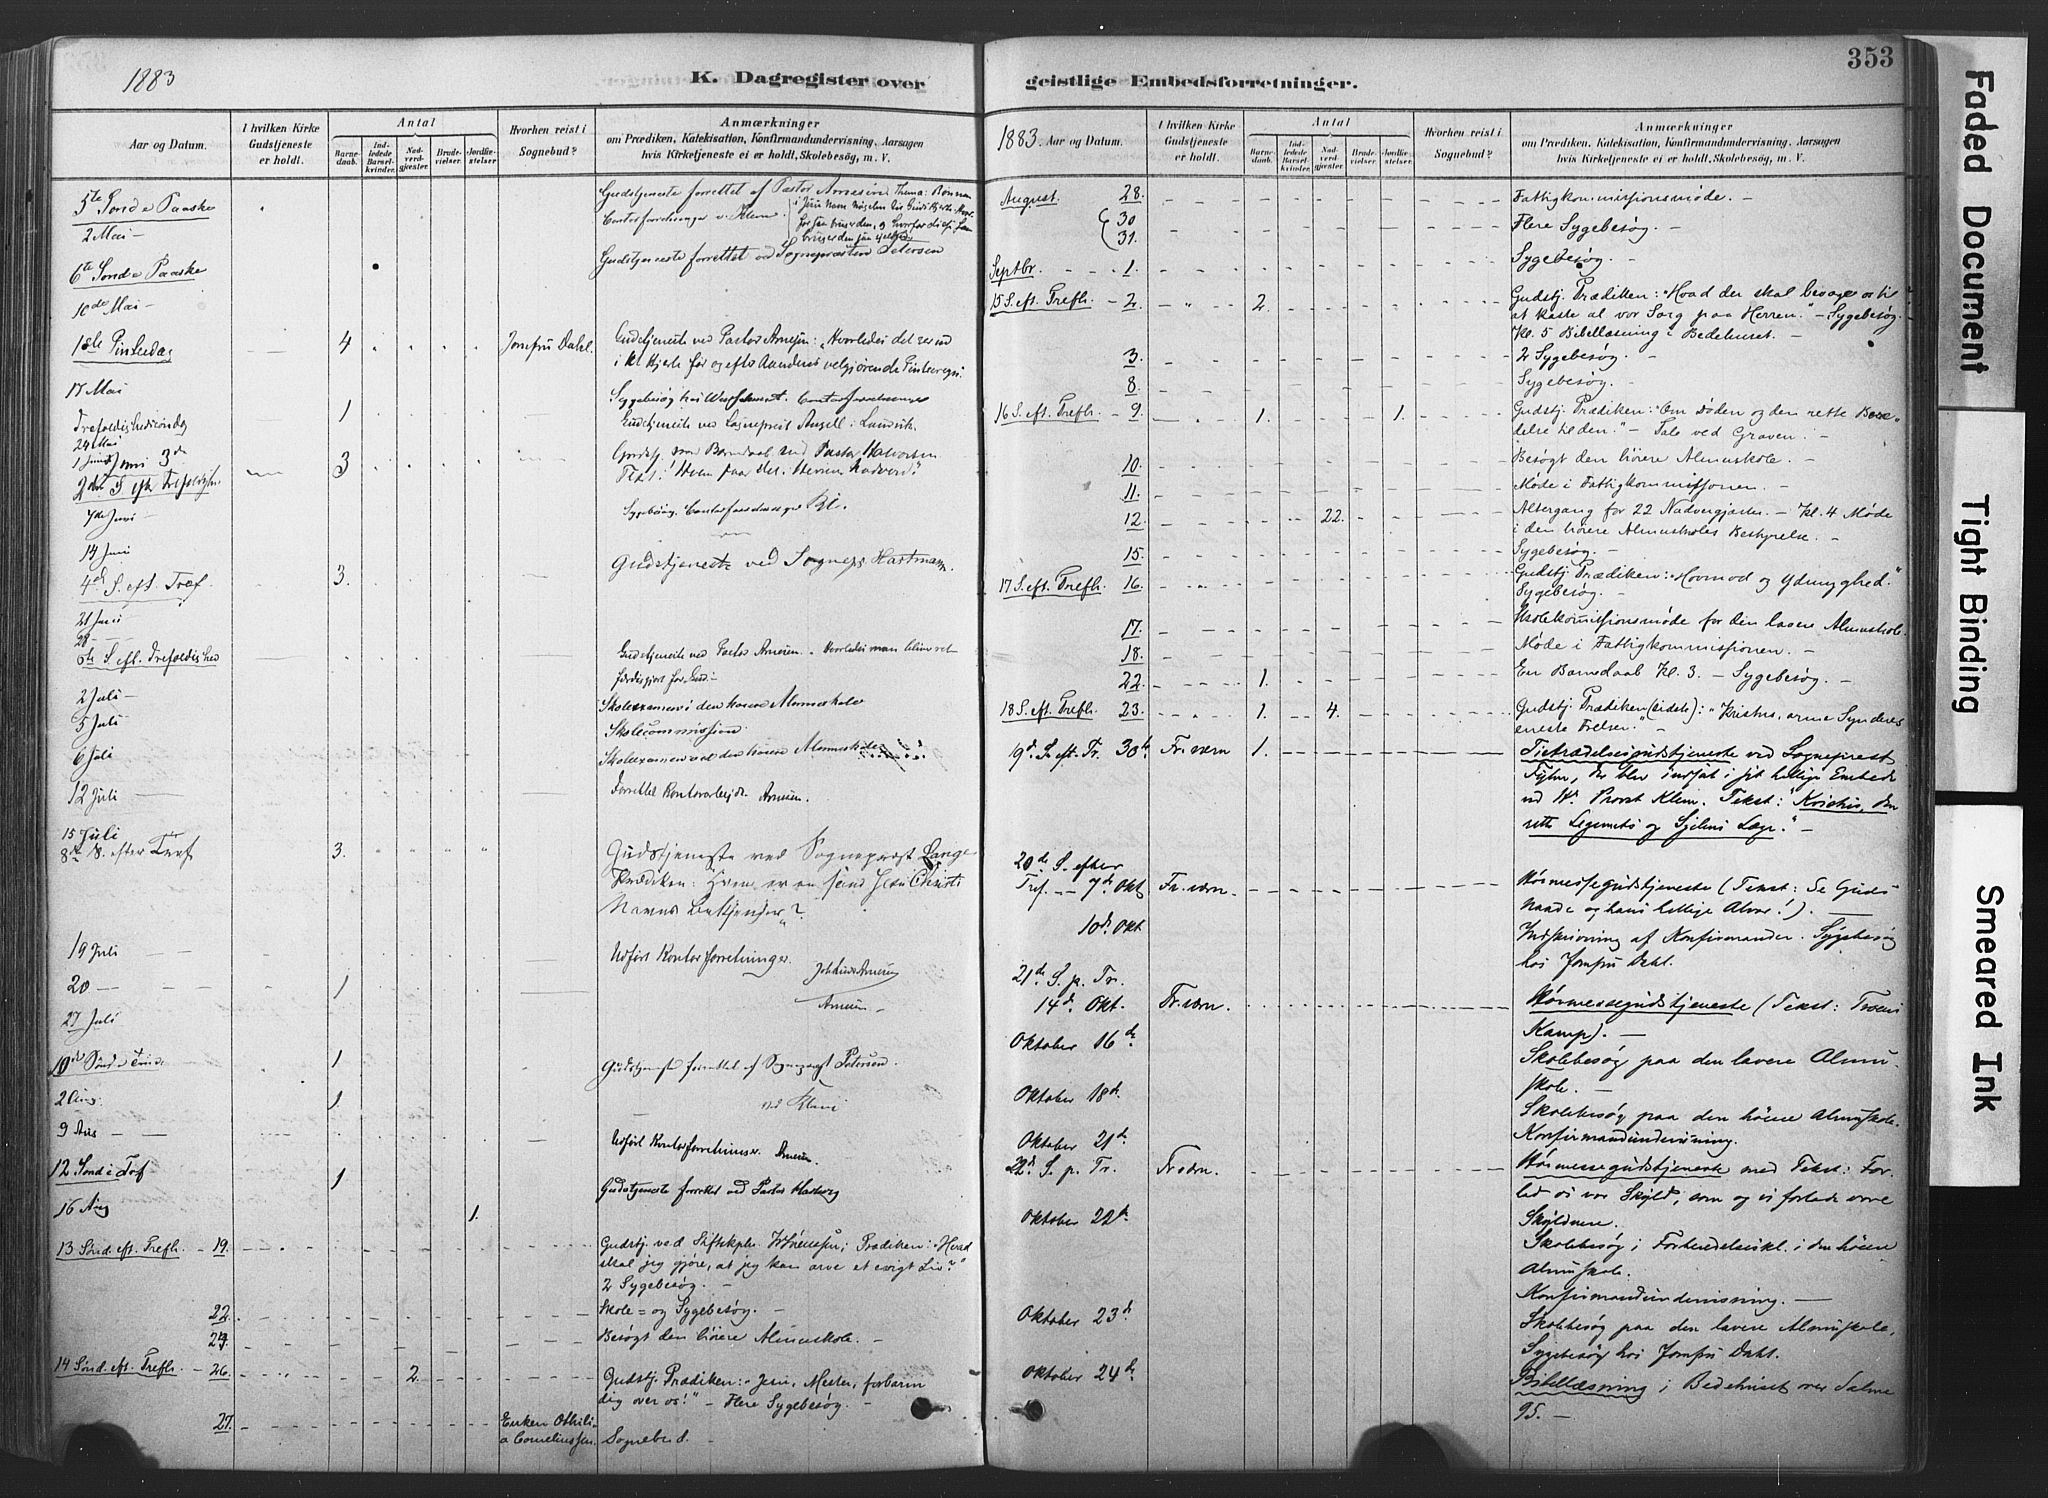 1883
K. Dagregister over
Aar og Datum.
I hvilken Kirke Gudstjeneste er holdt.
Antal
Barnedaab.
Indledede Barselkvinder.
Nadverdgjester.
Brudevielser.
Jordfæstelser
Hvorhen reist i Sognebud?
Anmærkninger
om Prædiken, Katekisation, Konfirmandundervisning, Aarsagen
hvis Kirketjeneste ei er holdt, Skolebesøg, m. V.
5te Sond e Paaske Gudstjeneste forrettet af Pastor Arnesen Thema: Bønnen
i Jesu Navn
2 Mai - Contorforretninger v. Klem.
6te Sond e Paaske Gudstjeneste forrettet ved Sognepræsten Petersen
10de Mai -
1ste Pintsedag 4 Jomfru Dahl. Gudstjeneste ved Pastor Arnesen: Hvorledes det ser ud
i et Hjerte før og efter Aandens velgjørende
17 Mai Sygebesøg hos Contorforretninger
Trefoldighedssøndag 1 Gudstjeneste ved Sognepræst Angell i Landvik.
24 Mai
1 Juni 3de
2den S. eft Trefoldighed 3 Gudstj. med Barnedaab ved Pastor Halvorsen
7de Juni Sygebesøg. Contorforretninger Kl.
14 Juni
4de S. eft. Tref 3. Gudstjeneste ved Sognepr Hartmann.
21 Juni
28 -
6te S. eft. Trefoldighed Gudstjeneste ved Pastor Arnesen. Hvorledes man bliver ret-
færdiggjort for Gud -
2 Juli Skoleexamen i den høiere Almueskole
5 Juli Skolecommission.
6 Juli Skoleexamen ved den høiere Almueskole
12 Juli Forrettet Kontorarbejde. Arnesen.
15 Juli
8de S. efter Tref 3. Gudstjeneste ved Sognepræst Lange
Prædiken: Hvem er en sand Jesu Christi
Navns Bekjender?
19 Juli Udført Kontorforretninger.
Arnesen
20 - 1 Arnesen -
27 Juli
10de Sønd e Trin. 1 Gudstjenest forrettet af Sognepræst Petersen.
2 Aug. 1. ved Klem
9 Aug - Udført Kontorforretninger. Arnesen.
12 Sond e Tref 1 Gudstjeneste forrettet ved Pastor Hasberg
16 Aug 1.
13 Sønd. eft. Trefh. - 19. Gudstj. ved Stiftskpln. Prædiken: "Hvad
skal jeg gjøre, at jeg kan arve et evigt Liv?"
2 Sygebesøg. -
22. Skole= og Sygebesøg. -
24. Besøgt den høiere Almueskole. -
14 Sønd. eft. Trefh. - 26. 2. Gudstj. Prædiken: "Jesu, Mester, forbarm
dig over os!" - Flere Sygebesøg. -
27. Enken Othili-
a Corneliussen. Sognebud. -
353
geistlige Embedsforretninger.
1883. Aar og Datum.
I hvilken Kirke Gudstjeneste er holdt.
Antal
Barnedaab.
Indledede Barselkvinder.
Nadverdgjester.
Brudevielser.
Jordfæstelser.
Hvorhen reist i Sognebud?
Anmærkninger
om Prædiken, Katekisation, Konfirmandundervisning, Aarsagen
hvis Kirketjeneste ei er holdt, Skolebesøg, m. V.
August. 28. Fattigkommissionsmøde. -
30
31. Flere Sygebesøg. -
Septbr. - 1. Sygebesøg. -
15 S. eft. Trefh. - 2. 2. Gudstj. Prædiken: "Hvad der skal bevæge os til
at kaste al vor Sorg paa Herren." - Sygebesøg.
Kl. 5 Bibellæsning i Bedehuset. -
3. 2 Sygebesøg. -
8. Sygebesøg. -
16 S. eft. Trefh. - 9. 1. 1. Gudstj. Prædiken: "Om Døden og den rette Bere-
delse til den." - Tale ved Graven. -
10. Besøgt den høiere Almueskole. -
11. Møde i Fattigkommissionen. -
12. 22. Altergang for 22 Nadvergjæster. - Kl. 4 Møde
i den høiere Almueskoles Bestyrelse. -
15. Sygebesøg. -
17 S. eft. Trefh. 16. Gudstj. Prædiken: "Hovmod og Ydmyghed."
Sygebesøg. -
17. Skolekommissionsmøde for den lavere Almueskole.
18. Møde i Fattigkommissionen. -
22. 1. En Barnedaab Kl. 3. - Sygebesøg. -
18 S. eft. Trefh. 23. 1. 4. Gudstj. Prædiken (sidste): "Kristus, arme Synderes
eneste Frelser." -
19de S. eft. Tr. 30te Fr.værn 1. Tiltrædelsesgudstjeneste ved Sogneprest
der blev indsat i sit hellige Embede
ved Hr. Provst Klem. Tekst: "Kristus, den
rette Legemets og Sjælens Læge." -
20de S. efter
Tref. - 7de Okt Fr.værn. Høimessegudstjeneste (Tekst: Se Guds
Naade og hans hellige Alvor!). -
10de Okt. Indskrivning af Konfirmander. Sygebesøg
hos Jomfru Dahl.
21de S. p. Tr.
14de Okt. Fr.værn. Høimessegudstjeneste (Tekst: Troens
Kamp). -
Oktober 16de Skolebesøg paa den lavere Almu-
skole. -
Oktober 18de Skolebesøg paa den høiere Almueskole.
Konfirmandundervisning.
Oktober 21de
22de S. p. Tr. Fr.værn. Høimessegudstjeneste med Tekst: For-
lad os vor Skyld, som og vi forlade vore
Skyldnere.
Oktober 22de Skolebesøg i Forberedelseskl. i den høiere
Almuskole.
Konfirmandundervisning. -
Oktober 23de Skolebesøg paa den lavere Almuskole,
Sygebesøg hos Jomfru Dahl.
Oktober 24de Bibellæsning i Bedehuset over Salme
95. -
Faded Document
Tight Binding
Smeared Ink